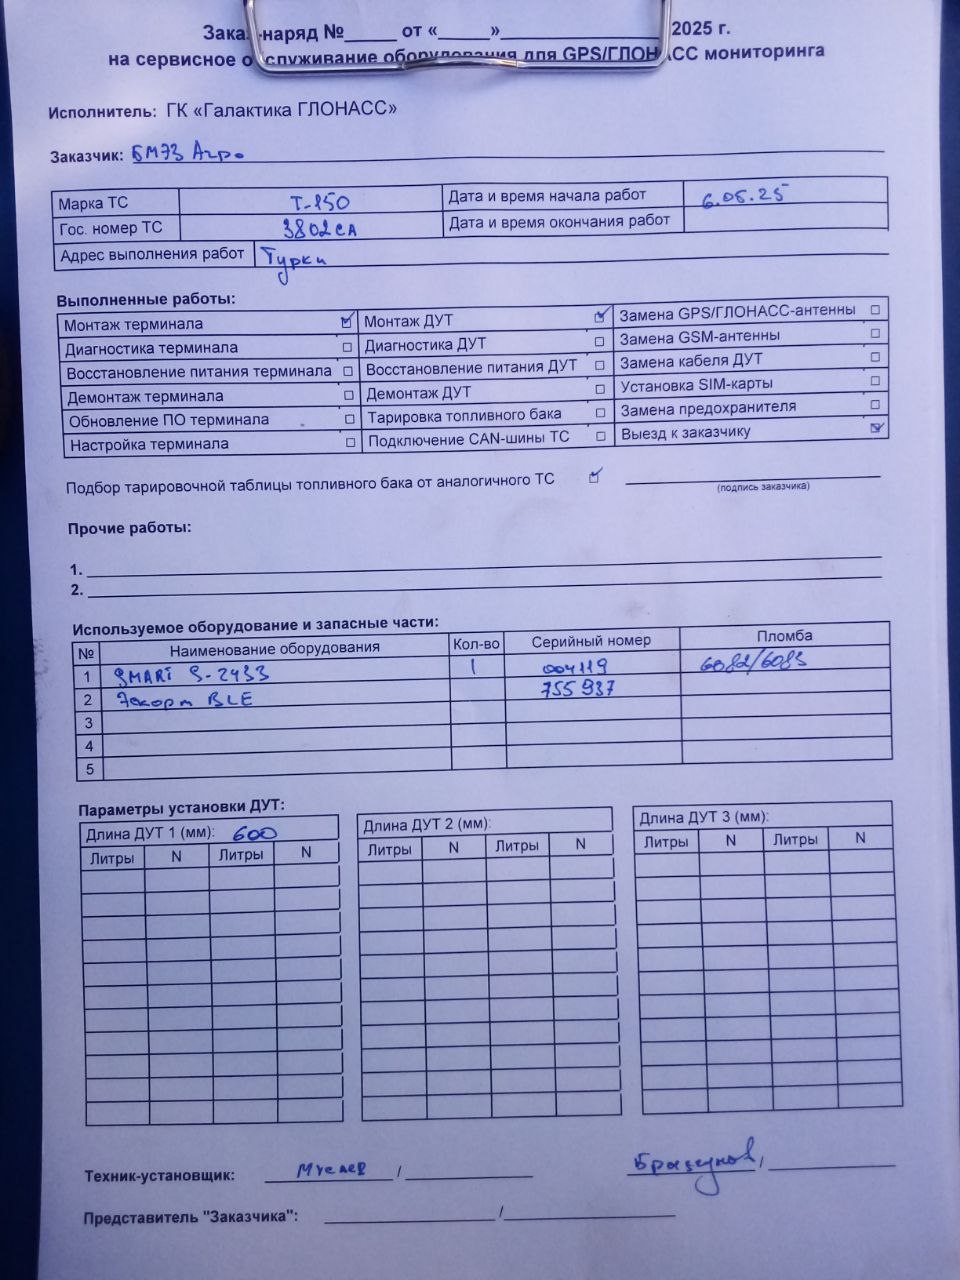 Заказ-наряд №_____ от «_____»_______________ 2025 г.
на сервисное обслуживание оборудования для GPS/ГЛОНАСС мониторинга
Исполнитель: ГК «Галактика ГЛОНАСС»
Заказчик: БМЭЗ Агро
Марка ТС Т-150 Дата и время начала работ 6.05.25
Гос. номер ТС 3802СА Дата и время окончания работ
Адрес выполнения работ Турки
Выполненные работы:
Монтаж терминала ☑ Монтаж ДУТ ☑ Замена GPS/ГЛОНАСС-антенны ☐
Диагностика терминала ☐ Диагностика ДУТ ☐ Замена GSM-антенны ☐
Восстановление питания терминала ☐ Восстановление питания ДУТ ☐ Замена кабеля ДУТ ☐
Демонтаж терминала ☐ Демонтаж ДУТ ☐ Установка SIM-карты ☐
Обновление ПО терминала ☐ Тарировка топливного бака ☐ Замена предохранителя ☐
Настройка терминала ☐ Подключение CAN-шины ТС ☐ Выезд к заказчику ☑
Подбор тарировочной таблицы топливного бака от аналогичного ТС ☑
(подпись заказчика)
Прочие работы:
1.
2.
Используемое оборудование и запасные части:
№ Наименование оборудования Кол-во Серийный номер Пломба
1 SMART S-2433 1 004119 6082/6083
2 Эскорт BLE 755937
3
4
5
Параметры установки ДУТ:
Длина ДУТ 1 (мм): 600 Длина ДУТ 2 (мм): Длина ДУТ 3 (мм):
Литры N Литры N Литры N Литры N Литры N Литры N
Техник-установщик: /
Представитель "Заказчика": /